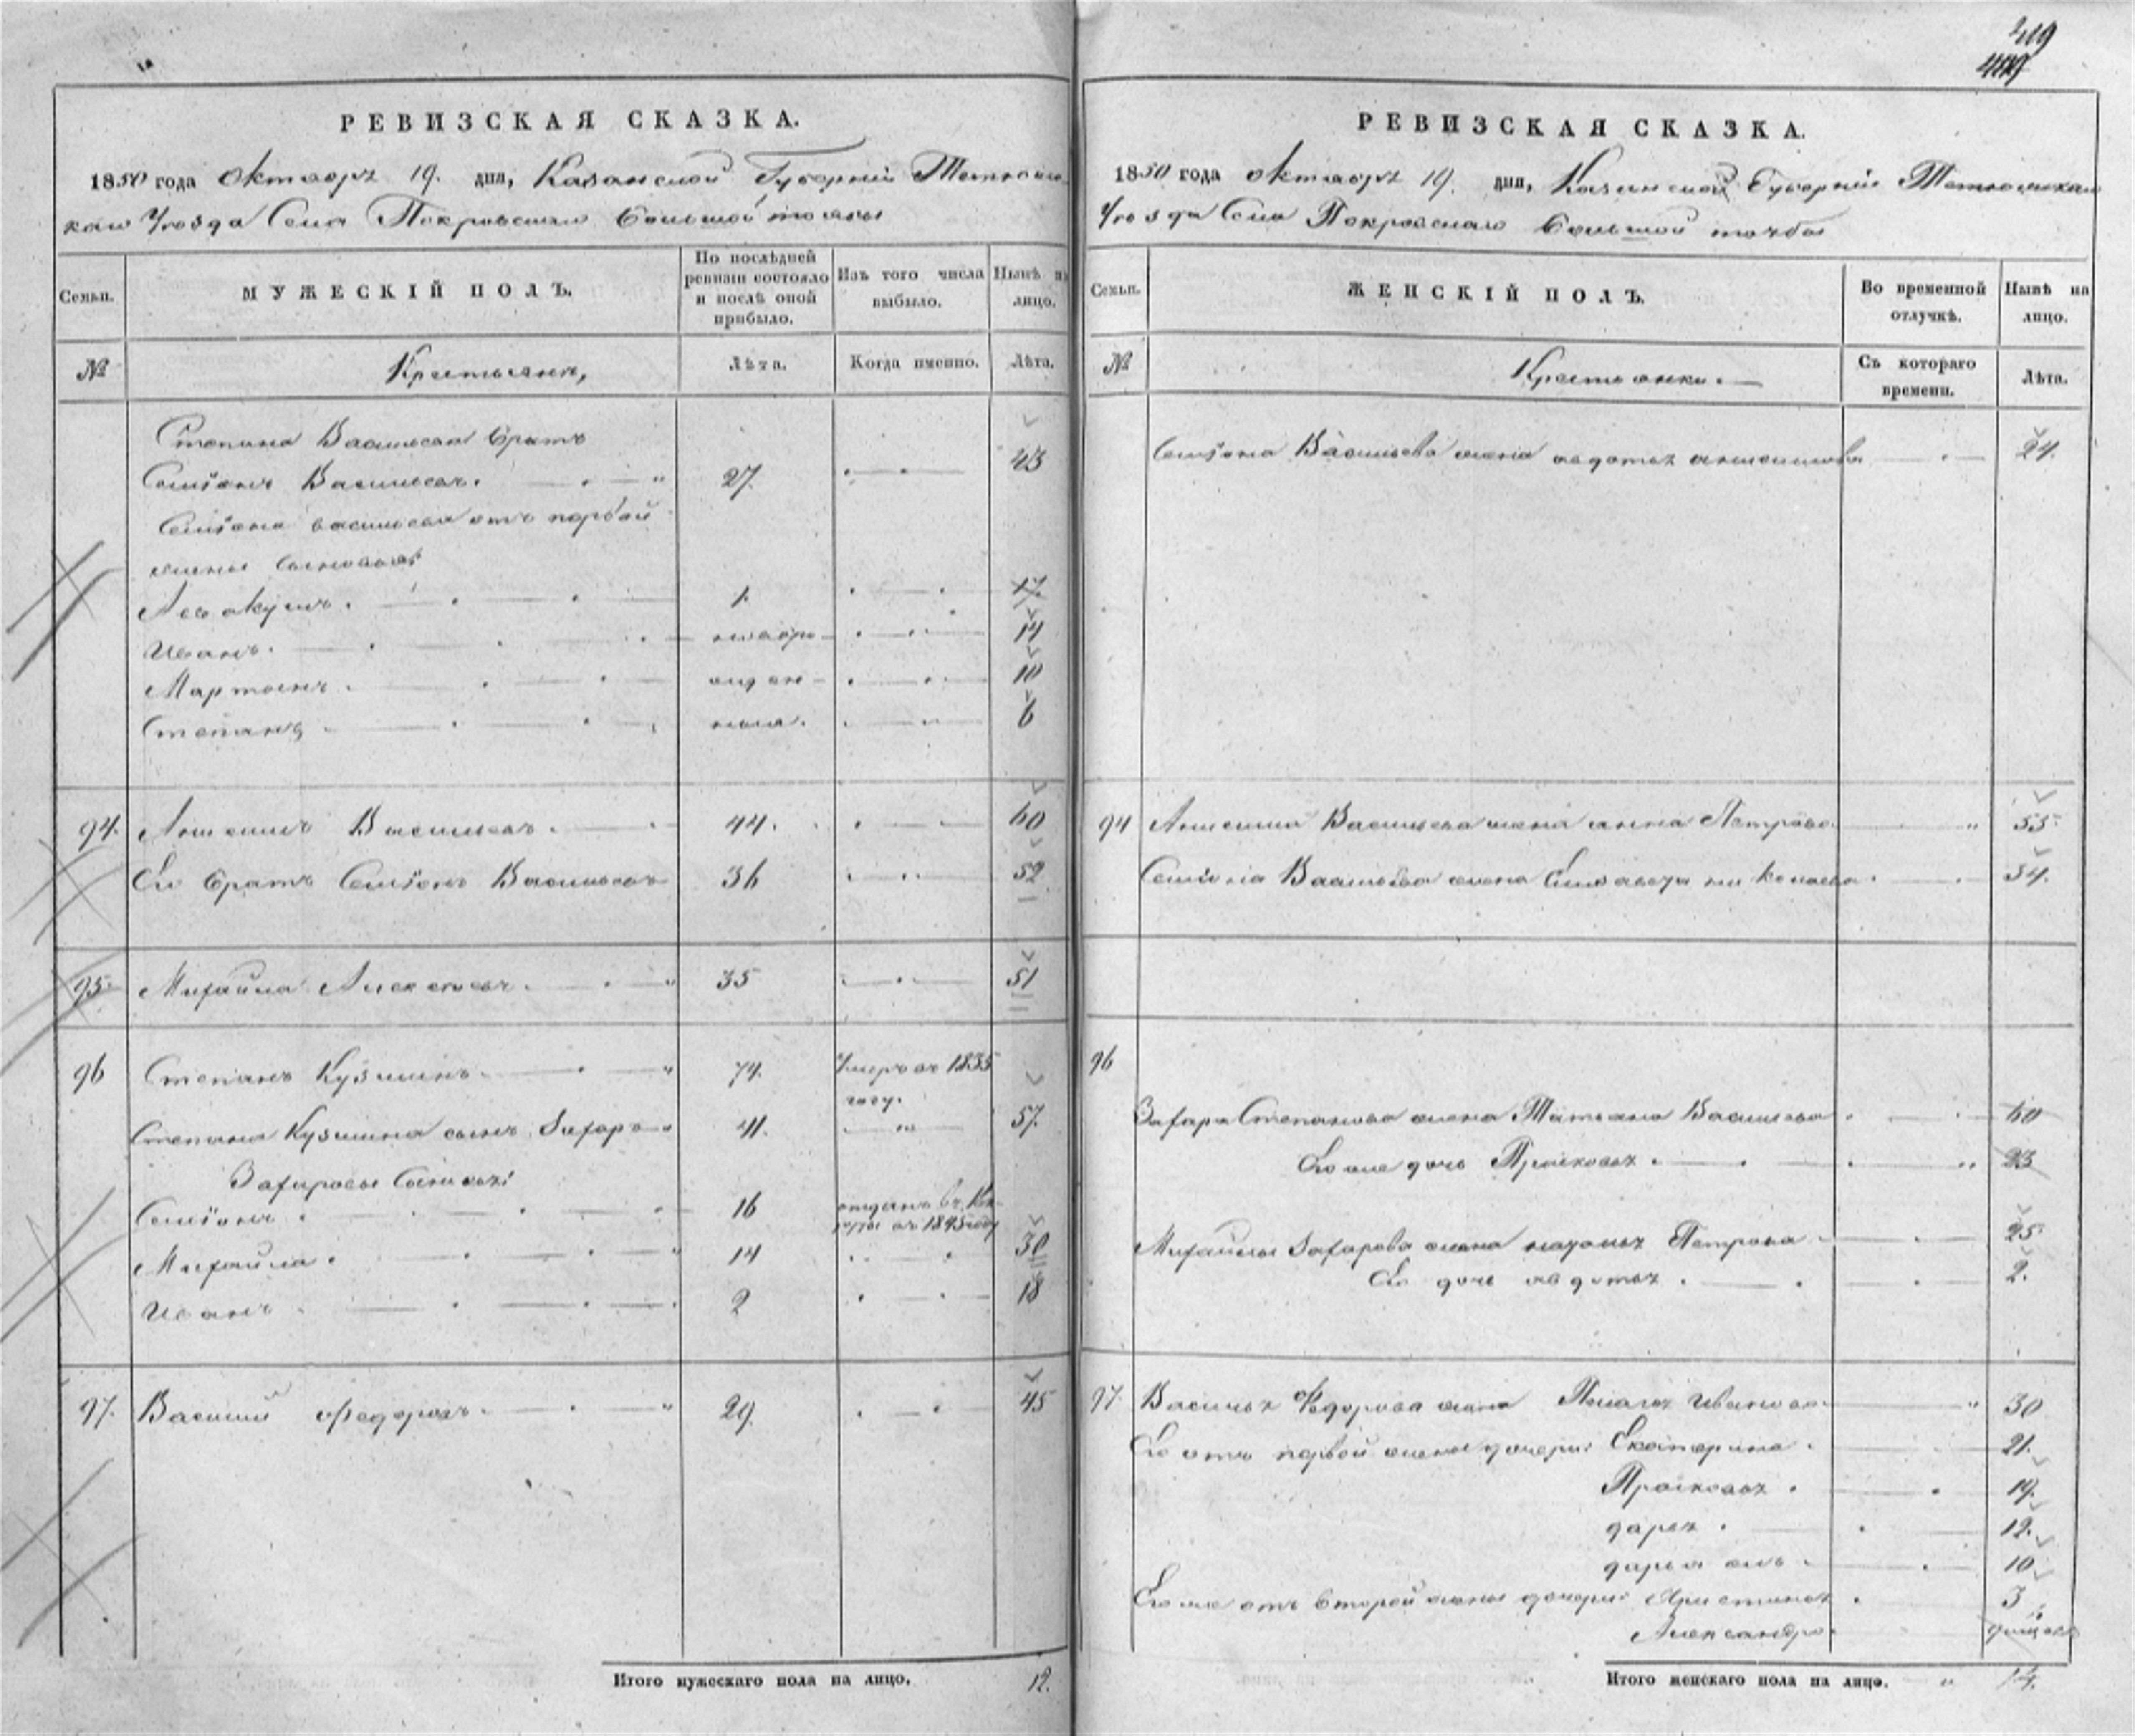 419
РЕВИЗСКАЯ СКАЗКА.
1850 года октября 19. дня, Казанской Губернии Тетюш-
каго Уезда Села Покровскаго Большой тоябы
Семьи. МУЖЕСКІЙ ПОЛЪ. По послѣдней ревизіи состояло и послѣ оной прибыло. Изъ того числа выбыло. Нынѣ на лицо.
№ Крестьяне, Лѣта. Когда именно. Лѣта.
Степана Васильева братъ
Семіонъ Васильевъ. 27. 43
Семіона васильева отъ первой
жены сыновья:
Авакумъ. 1. 17.
Иванъ. новоро- 14
Мартынъ. жден- 10
Степанъ ныя. 6
94. Анисимъ Васильевъ. 44. 60
Ево братъ Семіонъ Васильевъ 36 52
95 Михайла Алексеевъ. 35 51
96 Степанъ Кузминъ. 74. Умеръ въ 1835 году.
Степана Кузмина сынъ Захаръ 41. 57.
Захаровы сыновья:
Семіонъ. 16 отданъ въ рекруты въ 1845 году
Михайла. 14 30
Иванъ. 2 18
97. Василий Федоровъ. 29. 45
Итого мужескаго пола на лицо. 12.
РЕВИЗСКАЯ СКАЗКА.
1850 года октября 19. дня, Казанской Губернии Тетюшскаго
Уезда Села Покровскаго Большой тоябы
Семьи. ЖЕНСКІЙ ПОЛЪ. Во временной отлучкѣ. Нынѣ на лицо.
№ Крестьянки. Съ котораго времени. Лѣта.
Семіона Васильева жена авдотья анисимова 24.
94 Анисима Васильева жена анна Петрова 55.
Семиона Васильева жена Елизавета 54.
96
Захара Степанова жена Татьяна Васильева 60
Ево же дочь Просковья. 23
Михайлы Захарова жена Петрова 25.
Ево дочь авдотья. 2.
97. Василья Федорова жена Пелагея Иванова. 30
Ево отъ первой жены дочери: Екатерина. 21.
Просковья. 19.
дарья. 12.
дарья ожъ. 10.
Ево же отъ второй жены дочери: Християнья 3
Александра.
Итого женскаго пола на лицо. 14.